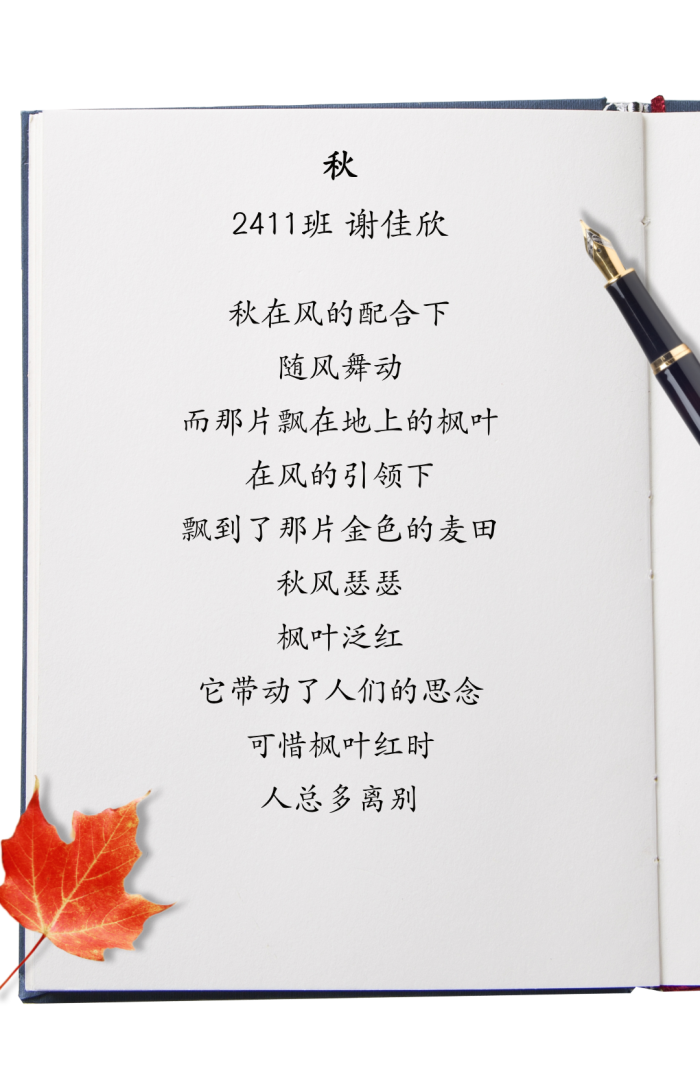 秋
2411班 谢佳欣
秋在风的配合下
随风舞动
而那片飘在地上的枫叶
在风的引领下
飘到了那片金色的麦田
秋风瑟瑟
枫叶泛红
它带动了人们的思念
可惜枫叶红时
人总多离别